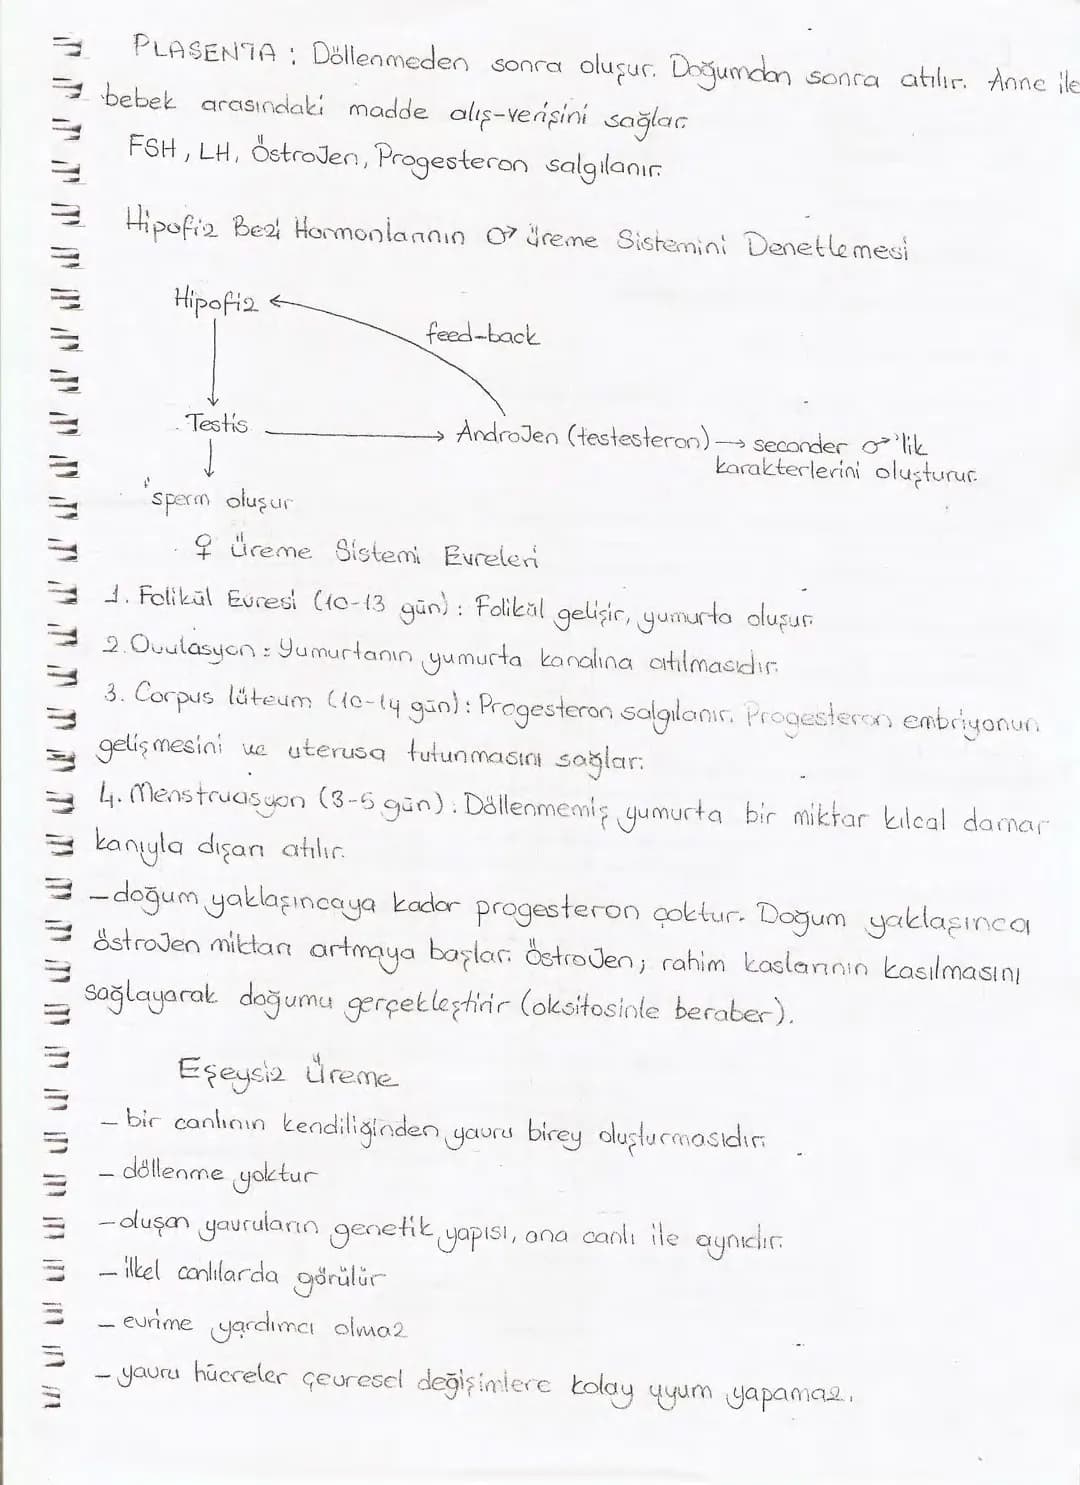 PLASENTA : Döllenmeden sonra oluşur. Doğumdan sonra atılır. Anne ile
bebek arasındaki madde alış-verişini sağlar.
FSH, LH, ÖstroJen, Progesteron salgılanır.
Hipofiz Bezi Hormonlarının ♂ üreme Sistemini Denetlemesi
Hipofiz
feed-back
Testis
AndroJen (testesteron) → seconder ♂'lik
karakterlerini oluşturur.
sperm oluşur
♀ üreme Sistemi Evreleri
1. Folikül Evresi (10-13 gün) : Folikül gelişir, yumurta oluşur.
2. Ovulasyon : Yumurtanın yumurta kanalına atılmasıdır.
3. Corpus lüteum (10-14 gün) : Progesteron salgılanır. Progesteron embriyonun
gelişmesini ve uterusa tutunmasını sağlar.
4. Menstruasyon (3-5 gün) : Döllenmemiş yumurta bir miktar kılcal damar
kanıyla dışarı atılır.
- doğum yaklaşıncaya kadar progesteron çoktur. Doğum yaklaşınca
östroJen miktarı artmaya başlar. ÖstroJen; rahim kaslarının kasılmasını
sağlayarak doğumu gerçekleştirir (oksitosinle beraber).
Eşeysiz Üreme
- bir canlının kendiliğinden yavru birey oluşturmasıdır.
- döllenme yoktur
- oluşan yavruların genetik yapısı, ana canlı ile aynıdır.
- ilkel canlılarda görülür
- evrime yardımcı olmaz
- yavru hücreler çevresel değişimlere kolay uyum yapamaz.